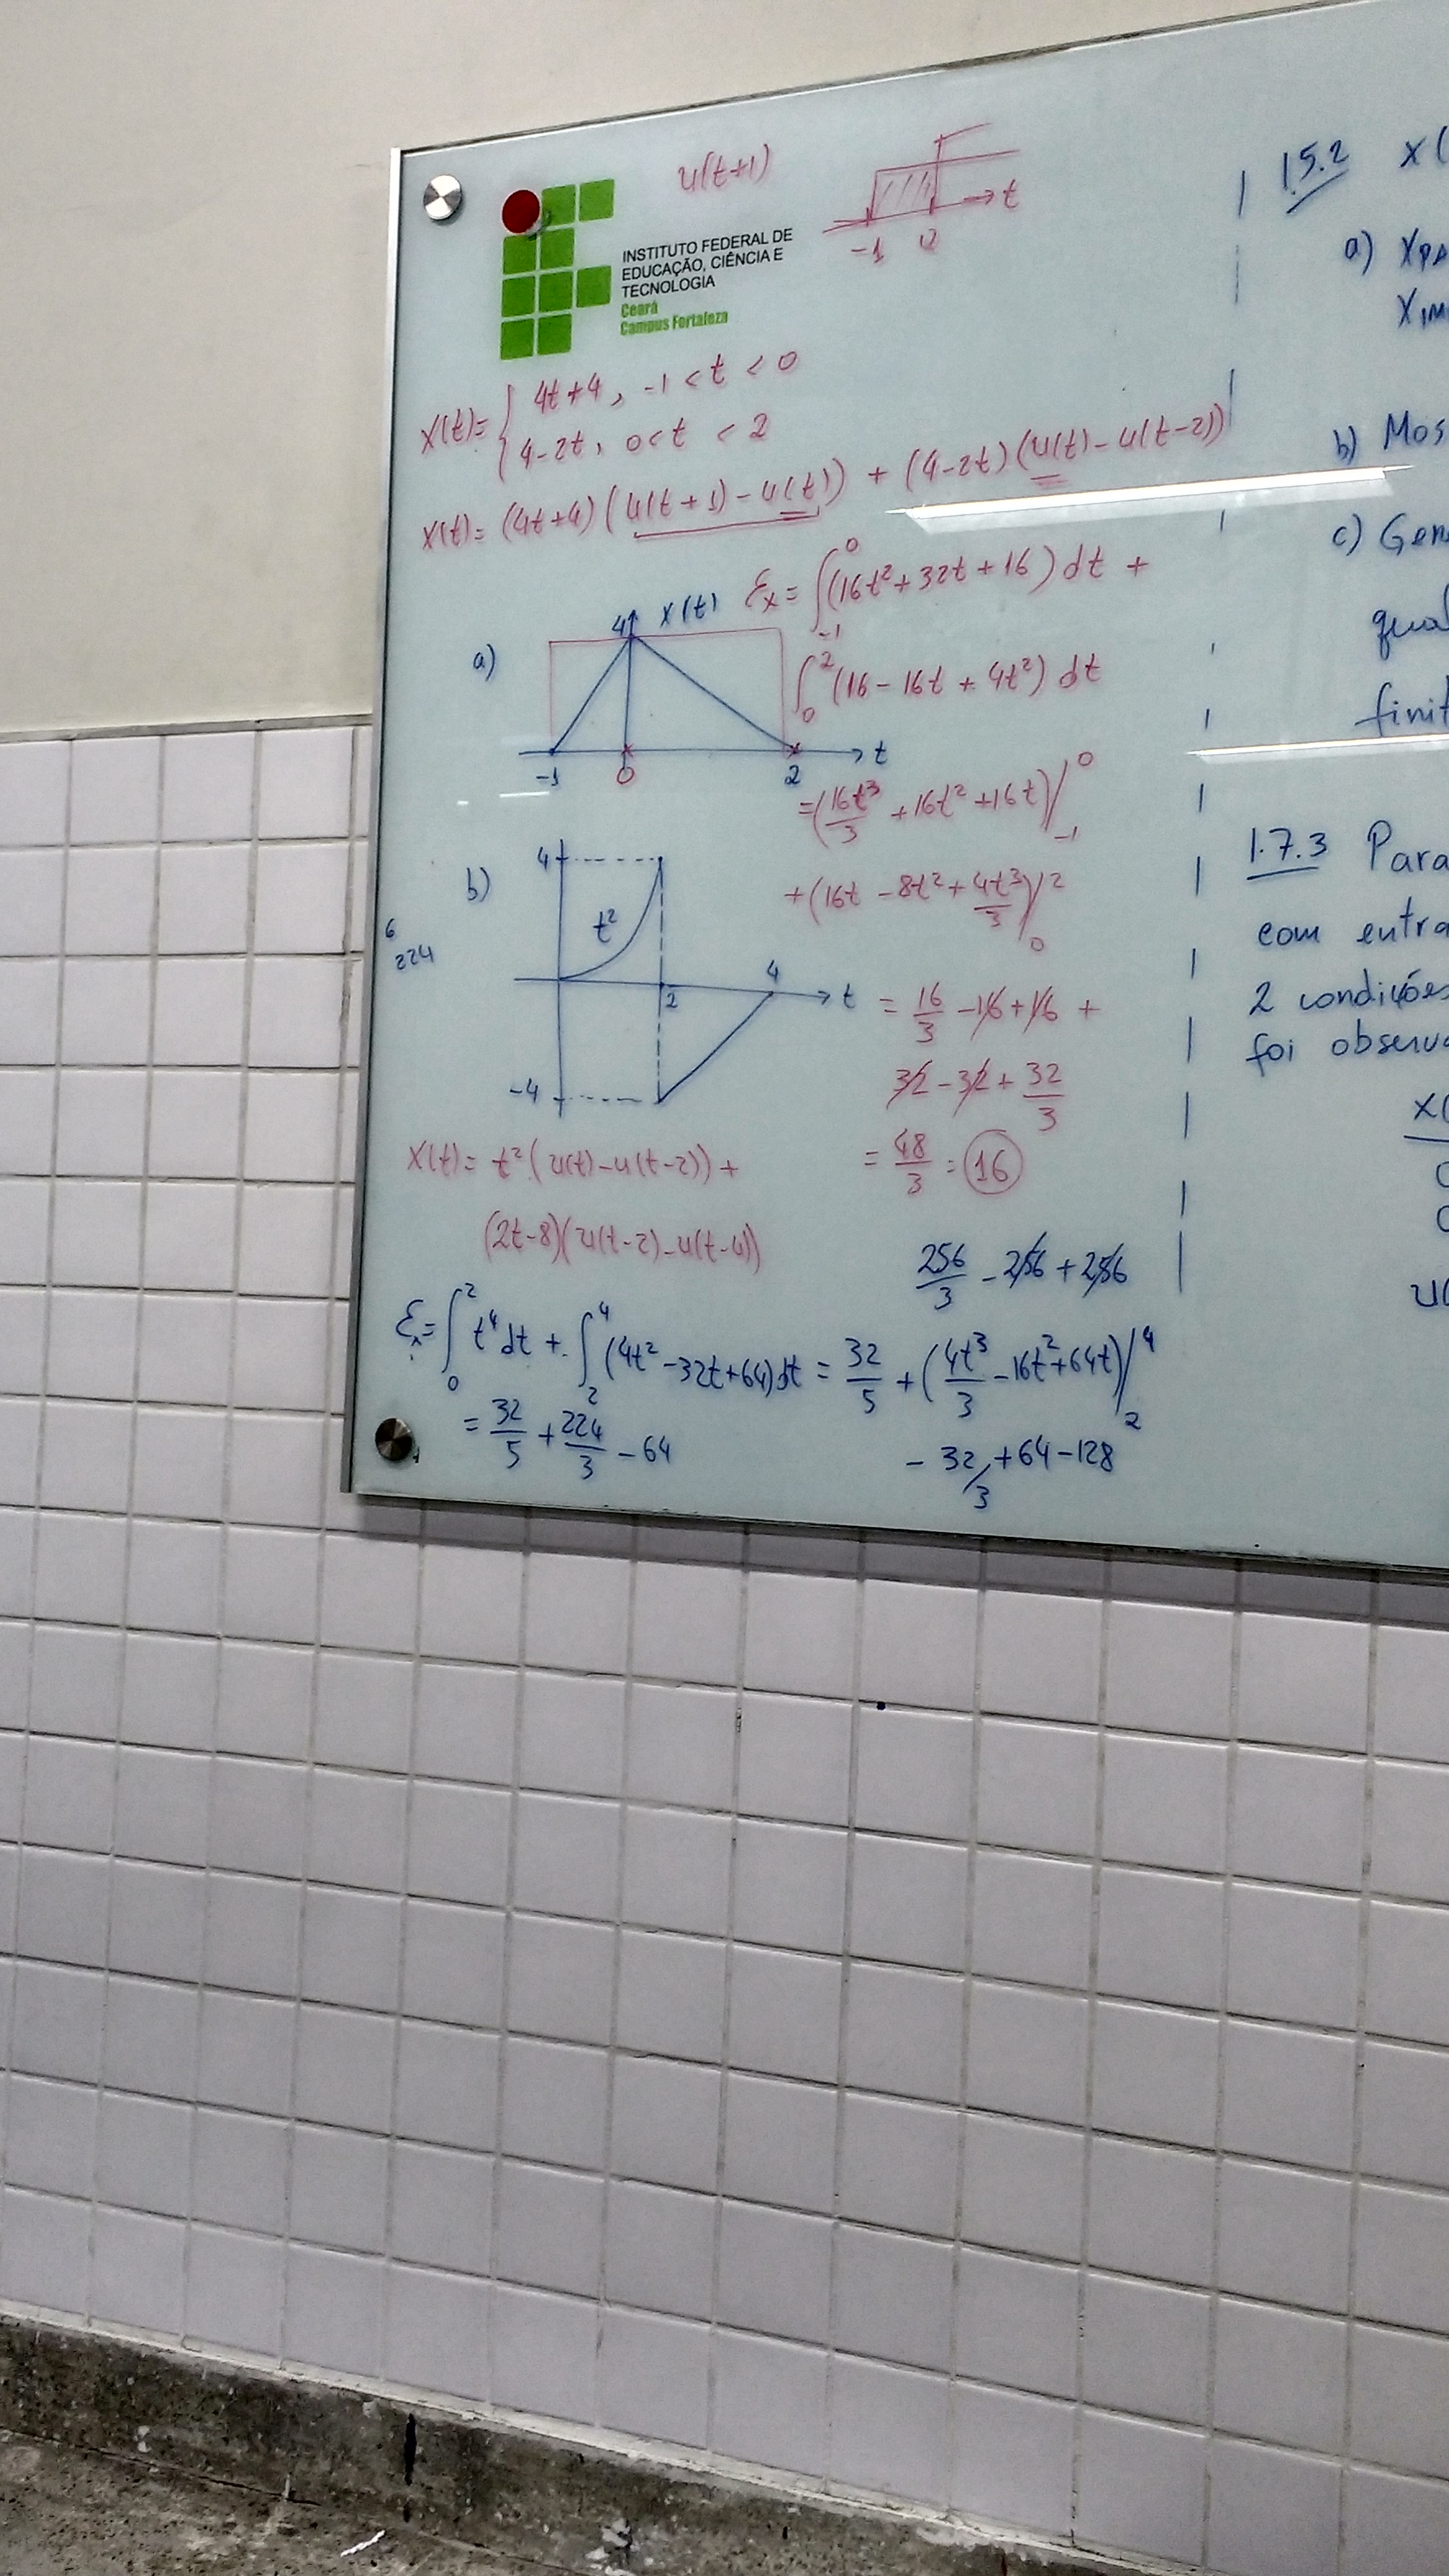 u(t+1)
-1 0 t
INSTITUTO FEDERAL DE
EDUCAÇÃO, CIÊNCIA E
TECNOLOGIA
Ceará
Campus Fortaleza
x(t)= { 4t+4, -1 < t < 0
4-2t, 0<t < 2
x(t)= (4t+4)(u(t+1)-u(t)) + (4-2t)(u(t)-u(t-2))
a)
4 x(t)
-1 0 2 t
Ex= ∫₋₁⁰(16t²+32t+16)dt +
∫₀²(16-16t+4t²)dt
=(16t³/3+16t²+16t)/₋₁⁰
+(16t-8t²+4t³/3)/₀²
= 16/3-16+16+
32-32+32/3
= 48/3=16
b)
4
t²
2 4 t
-4
6
224
x(t)= t²(u(t)-u(t-2))+
(2t-8)(u(t-2)-u(t-4))
256/3-256+256
Ex=∫₀²t⁴dt+∫₂⁴(4t²-32t+64)dt = 32/5+(4t³/3-16t²+64t)/₂⁴
= 32/5+224/3-64
-32/3+64-128
1.5.2 x(
a) XPA
XIM
b) Mos
c) Gen
qual
finit
1.7.3 Para
com entra
2 condições
foi observa
x(
0
0
u(